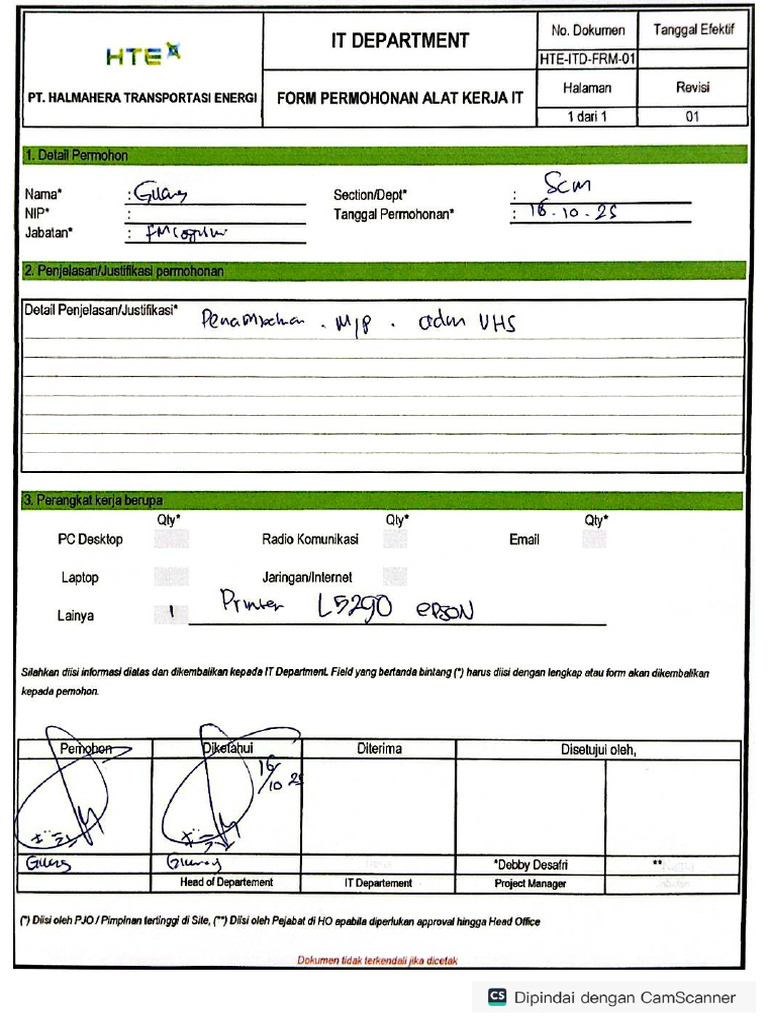 HTE
IT DEPARTMENT
No. Dokumen
Tanggal Efektif
HTE-ITD-FRM-01
PT. HALMAHERA TRANSPORTASI ENERGI
FORM PERMOHONAN ALAT KERJA IT
Halaman
Revisi
1 dari 1
01
1. Detail Permohon
Nama* :
Section/Dept* : Scm
NIP* :
Tanggal Permohonan* : 16.10.25
Jabatan* :
2. Penjelasan/Justifikasi permohonan
Detail Penjelasan/Justifikasi* Penambahan . M/P . adm VHS
3. Perangkat kerja berupa
Qty* Qty* Qty*
PC Desktop Radio Komunikasi Email
Laptop Jaringan/Internet
Lainya 1 Printer L5290 EPSON
Silahkan diisi informasi diatas dan dikembalikan kepada IT Department. Field yang bertanda bintang (*) harus diisi dengan lengkap atau form akan dikembalikan
kepada pemohon.
Pemohon Diketahui Diterima Disetujui oleh,
16/10 25
*Debby Desafri **
Head of Departement IT Departement Project Manager
(*) Diisi oleh PJO / Pimpinan tertinggi di Site, (**) Diisi oleh Pejabat di HO apabila diperlukan approval hingga Head Office
Dokumen tidak terkendali jika dicetak
CS Dipindai dengan CamScanner